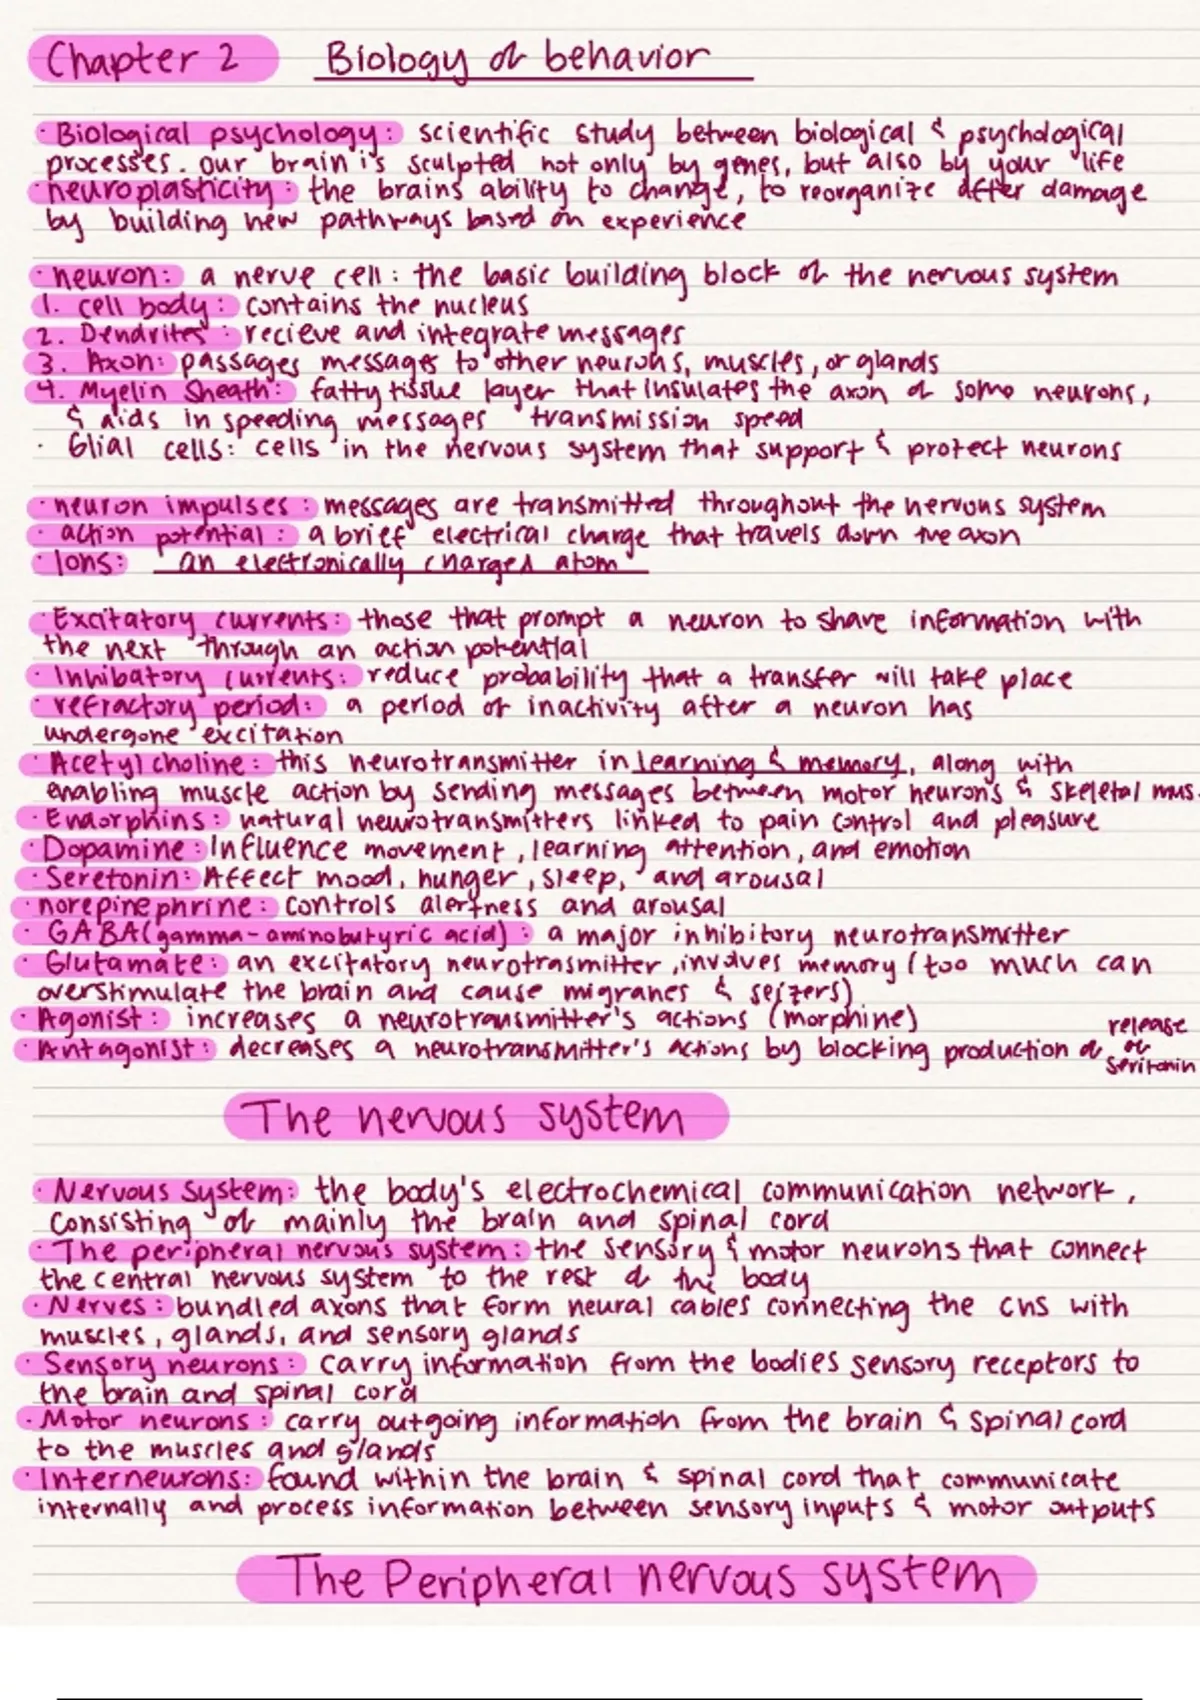 Chapter 2 Biology of behavior
· Biological psychology: scientific study between biological & psychological
processes. our brain is sculpted not only by genes, but also by your life
· neuroplasticity: the brains ability to change, to reorganize after damage
by building new pathways based on experience
· neuron: a nerve cell: the basic building block of the nervous system
1. cell body: contains the nucleus
2. Dendrites: recieve and integrate messages
3. Axon: passages messages to other neurons, muscles, or glands
4. Myelin Sheath: fatty tissue layer that insulates the axon of some neurons,
& aids in speeding messages transmission speed
· Glial cells: cells in the nervous system that support & protect neurons
· neuron impulses: messages are transmitted throughout the nervous system
· action potential: a brief electrical charge that travels down the axon
· Ions: an electronically charged atom
· Excitatory currents: those that prompt a neuron to share information with
the next through an action potential
· Inhibatory currents: reduce probability that a transfer will take place
· refractory period: a period of inactivity after a neuron has
undergone excitation
· Acetylcholine: this neurotransmitter in learning & memory, along with
enabling muscle action by sending messages between motor neuron's & skeletal mus.
· Endorphins: natural neurotransmitters linked to pain control and pleasure
· Dopamine: Influence movement, learning attention, and emotion
· Seretonin: Affect mood, hunger, sleep, and arousal
· norepinephrine: controls alertness and arousal
· GABA(gamma-aminobutyric acid): a major inhibitory neurotransmitter
· Glutamate: an excitatory neurotrasmitter, involves memory (too much can
overstimulate the brain and cause migranes & seizers)
· Agonist: increases a neurotransmitter's actions (morphine)
· Antagonist: decreases a neurotransmitter's actions by blocking production or release
of
seritonin
The nervous system
· Nervous system: the body's electrochemical communication network,
consisting of mainly the brain and spinal cord
· The peripheral nervous system: the sensory & motor neurons that connect
the central nervous system to the rest of the body
· Nerves: bundled axons that form neural cables connecting the cns with
muscles, glands, and sensory glands
· Sensory neurons: carry information from the bodies sensory receptors to
the brain and spinal cord
· Motor neurons: carry outgoing information from the brain & spinal cord
to the muscles and glands
· Interneurons: found within the brain & spinal cord that communicate
internally and process information between sensory inputs & motor outputs
The Peripheral nervous system